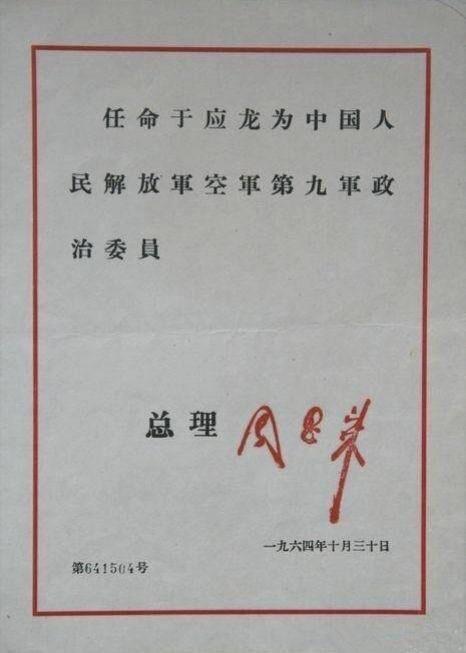 任命于应龙为中国人
民解放軍空軍第九軍政
治委員
总理 周恩来
一九六四年十月三十日
第641504号